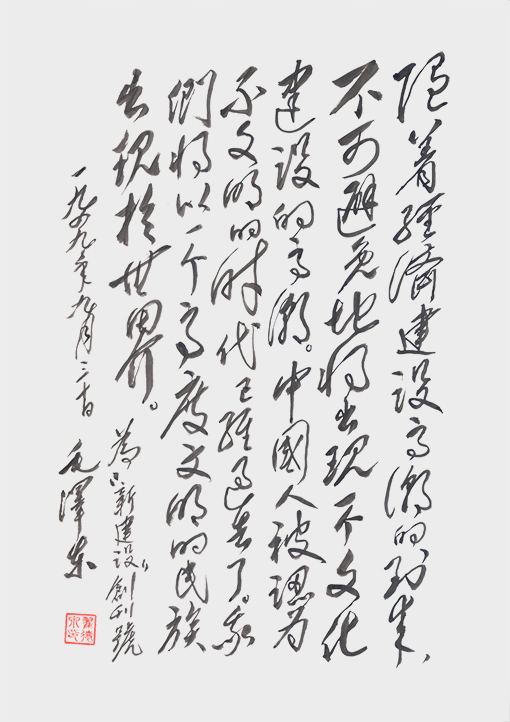 随着經濟建設高潮的到来、
不可避免地将出現一个文化
建設的高潮。中國人被認为
不文明的时代已經過去了。我
們将以一个高度文明的民族
出現於世界。
為“新建設”創刊號
一九四九年九月二十日
毛澤東